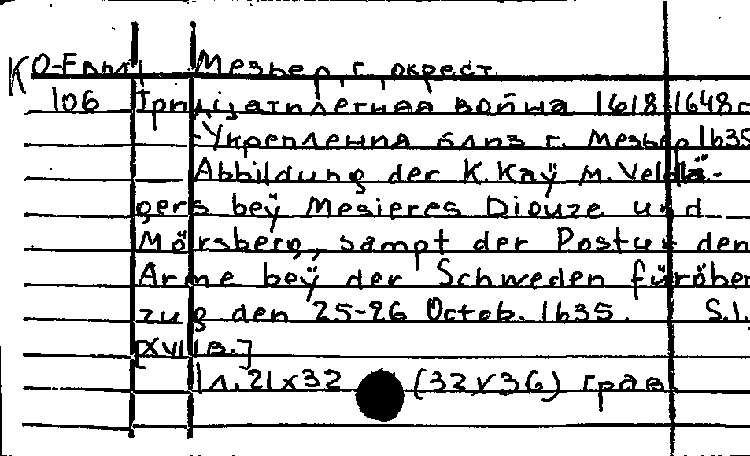 К О-Евр.
Мезьер, г. окрест.
106 Тридцатилетняя война 1618-1648г
-Укрепления близ г. Мезьер 1635
Abbildung der K. Kaÿ M. Veldlä-
gers beÿ Mesieres Diouze und
Mörsberg, sampt der Postur den
Arme beÿ der Schweden füröber
zug den 25-26 Octob. 1635. S.l.
[XVII в.]
1 л. 21x32 (32x36) грав.